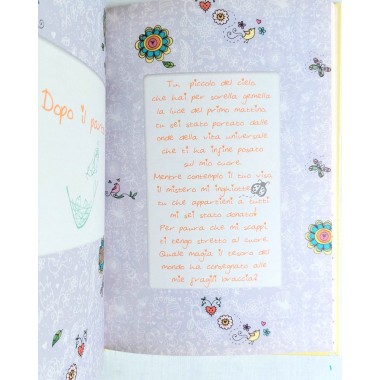 Dopo il
Tu piccolo del cielo
che hai per sorella gemella
la luce del primo mattino
tu sei stato portato dalle
onde della vita universale
che ti ha infine posato
sul mio cuore.
Mentre contemplo il tuo viso
il mistero mi inghiotte
tu che appartieni a tutti
mi sei stato donato!
Per paura che mi scappi
ti tengo stretto al cuore.
Quale magia il tesoro del
mondo ha consegnato alle
mie fragili braccia!